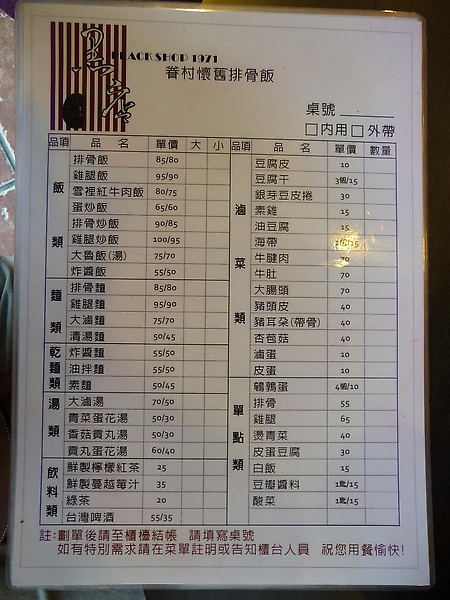 黑店
BLACK SHOP 1971
眷村懷舊排骨飯
桌號
□內用□外帶
品項 品名 單價 大 小
飯類
排骨飯 85/80
雞腿飯 95/90
雪裡紅牛肉飯 80/75
蛋炒飯 65/60
排骨炒飯 90/85
雞腿炒飯 100/95
大魯飯(湯) 75/70
炸醬飯 55/50
麵類
排骨麵 85/80
雞腿麵 95/90
大滷麵 75/70
清湯麵 50/45
乾麵類
炸醬麵 55/50
油拌麵 55/50
素麵 50/45
湯類
大滷湯 70/50
青菜蛋花湯 50/30
香菇貢丸湯 50/30
貢丸蛋花湯 60/40
飲料類
鮮製檸檬紅茶 25
鮮製蔓越莓汁 35
綠茶 20
台灣啤酒 55/35
品項 品名 單價 數量
滷菜類
豆腐皮 10
豆腐干 3個/15
銀芽豆皮捲 30
素雞 15
油豆腐 15
海帶
牛腱肉 70
牛肚 70
大腸頭 70
豬頭皮 40
豬耳朵(帶骨) 40
杏苞菇 40
滷蛋 10
皮蛋 10
單點類
鵪鶉蛋 4個/10
排骨 55
雞腿 65
燙青菜 40
皮蛋豆腐 30
白飯 15
豆瓣醬料 1匙/15
酸菜 1匙/15
註:劃單後請至櫃檯結帳 請填寫桌號
如有特別需求請在菜單註明或告知櫃台人員 祝您用餐愉快!